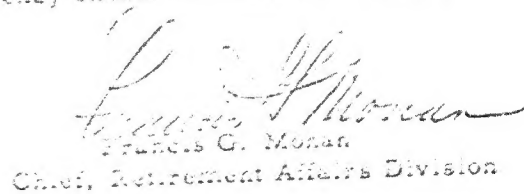 Francis G. Monan
Francis G. Monan
Chief, Retirement Affairs Division